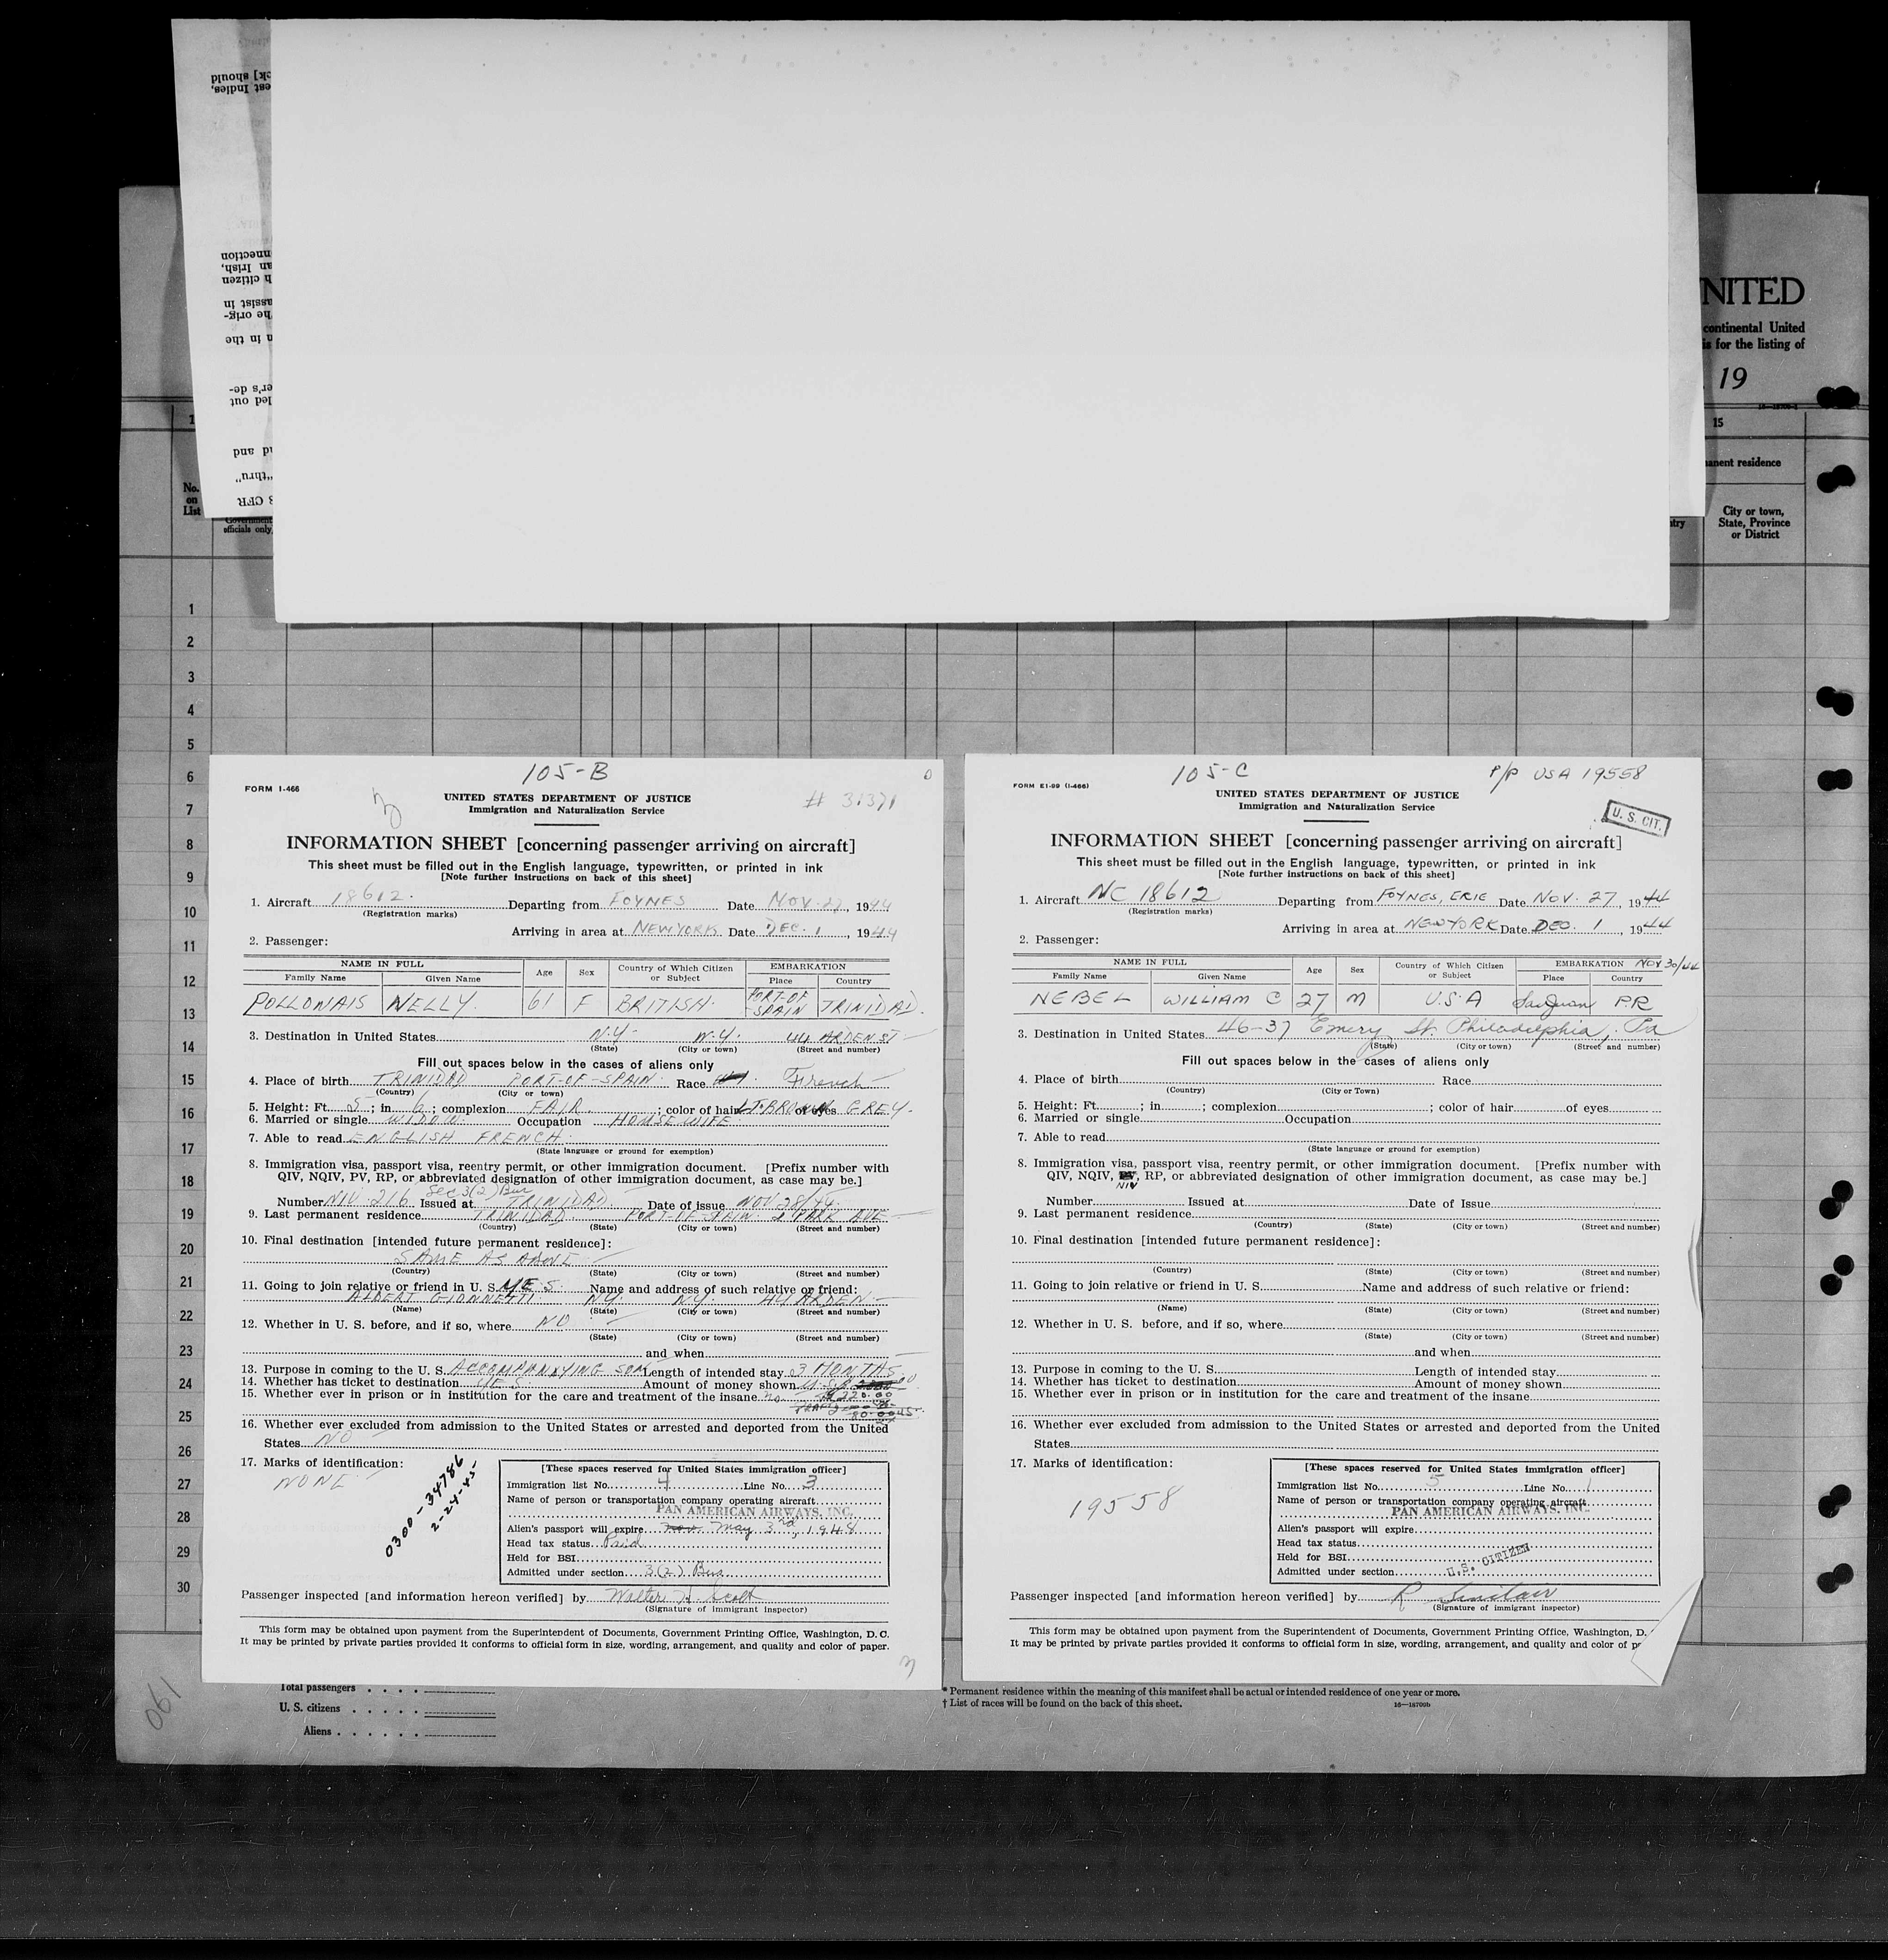 NITED
continental United
is for the listing of
19
15
nent residence
City or town,
State, Province
or District
No.
on
List
officials only,
1
2
3
4
5
6
7
8
9
10
11
12
13
14
15
16
17
18
19
20
21
22
23
24
25
26
27
28
29
30
105-B
FORM I-466
# 31371
UNITED STATES DEPARTMENT OF JUSTICE
Immigration and Naturalization Service
INFORMATION SHEET [concerning passenger arriving on aircraft]
This sheet must be filled out in the English language, typewritten, or printed in ink
[Note further instructions on back of this sheet]
1. Aircraft 18612. Departing from FOYNES Date NOV. 27, 1944
(Registration marks)
Arriving in area at NEW YORK Date DEC. 1, 1944
2. Passenger:
NAME IN FULL Age Sex Country of Which Citizen or Subject EMBARKATION
Family Name Given Name Place Country
POLLONAIS NELLY. 61 F BRITISH. PORT-OF-SPAIN TRINIDAD.
3. Destination in United States N.Y. N.Y. 44 ARDEN ST
(State) (City or town) (Street and number)
Fill out spaces below in the cases of aliens only
4. Place of birth TRINIDAD PORT-OF-SPAIN. Race French
(Country) (City or town)
5. Height: Ft. 5; in 6; complexion FAIR; color of hair LT. BROWN of eyes GREY.
6. Married or single WIDOW. Occupation HOUSEWIFE.
7. Able to read ENGLISH FRENCH.
(State language or ground for exemption)
8. Immigration visa, passport visa, reentry permit, or other immigration document. [Prefix number with
QIV, NQIV, PV, RP, or abbreviated designation of other immigration document, as case may be.]
Sec 3(2) Bus
Number NIV. 216 Issued at TRINIDAD Date of issue NOV 28/44
9. Last permanent residence TRINIDAD PORT-OF-SPAIN. 2 PARK AVE
(Country) (State) (City or town) (Street and number)
10. Final destination [intended future permanent residence]:
SAME AS ABOVE
(Country) (State) (City or town) (Street and number)
11. Going to join relative or friend in U. S. YES. Name and address of such relative or friend:
ALBERT GIONNETTI N.Y. N.Y. 44 ARDEN
(Name) (State) (City or town) (Street and number)
12. Whether in U. S. before, and if so, where NO
(State) (City or town) (Street and number)
and when
13. Purpose in coming to the U. S. ACCOMPANYING SON Length of intended stay 03 MONTHS
14. Whether has ticket to destination YES Amount of money shown
15. Whether ever in prison or in institution for the care and treatment of the insane no
16. Whether ever excluded from admission to the United States or arrested and deported from the United
States NO
17. Marks of identification:
NONE
0300-34786
2-24-45
[These spaces reserved for United States immigration officer]
Immigration list No. 4 Line No. 3
Name of person or transportation company operating aircraft
PAN AMERICAN AIRWAYS, INC.
Alien's passport will expire May 3rd, 1948
Head tax status Paid
Held for BSI
Admitted under section 3(2) Bus
Passenger inspected [and information hereon verified] by Walter H. Scott
(Signature of immigrant inspector)
This form may be obtained upon payment from the Superintendent of Documents, Government Printing Office, Washington, D. C.
It may be printed by private parties provided it conforms to official form in size, wording, arrangement, and quality and color of paper.
105-C
P/P USA 19558
FORM E1-99 (I-466)
UNITED STATES DEPARTMENT OF JUSTICE
Immigration and Naturalization Service
U. S. CIT.
INFORMATION SHEET [concerning passenger arriving on aircraft]
This sheet must be filled out in the English language, typewritten, or printed in ink
[Note further instructions on back of this sheet]
1. Aircraft NC 18612 Departing from FOYNES, ERIE Date NOV. 27, 1944
(Registration marks)
Arriving in area at NEW YORK Date DEC. 1, 1944
2. Passenger:
NAME IN FULL Age Sex Country of Which Citizen or Subject EMBARKATION NOV 30/44
Family Name Given Name Place Country
NEBEL WILLIAM C 27 M U.S.A San Juan P.R
3. Destination in United States 46-37 Emery St. Philadelphia, Pa
(State) (City or town) (Street and number)
Fill out spaces below in the cases of aliens only
4. Place of birth Race
(Country) (City or Town)
5. Height: Ft. ; in ; complexion ; color of hair of eyes
6. Married or single Occupation
7. Able to read
(State language or ground for exemption)
8. Immigration visa, passport visa, reentry permit, or other immigration document. [Prefix number with
QIV, NQIV, NIV, RP, or abbreviated designation of other immigration document, as case may be.]
Number Issued at Date of Issue
9. Last permanent residence
(Country) (State) (City or town) (Street and number)
10. Final destination [intended future permanent residence]:
(Country) (State) (City or town) (Street and number)
11. Going to join relative or friend in U. S. Name and address of such relative or friend:
(Name) (State) (City or town) (Street and number)
12. Whether in U. S. before, and if so, where
(State) (City or town) (Street and number)
and when
13. Purpose in coming to the U. S. Length of intended stay
14. Whether has ticket to destination Amount of money shown
15. Whether ever in prison or in institution for the care and treatment of the insane
16. Whether ever excluded from admission to the United States or arrested and deported from the United
States
17. Marks of identification:
19558
[These spaces reserved for United States immigration officer]
Immigration list No. 5 Line No. 1
Name of person or transportation company operating aircraft
PAN AMERICAN AIRWAYS, INC.
Alien's passport will expire
Head tax status
Held for BSI
Admitted under section U.S. CITIZEN
Passenger inspected [and information hereon verified] by R Sinclair
(Signature of immigrant inspector)
This form may be obtained upon payment from the Superintendent of Documents, Government Printing Office, Washington, D.
It may be printed by private parties provided it conforms to official form in size, wording, arrangement, and quality and color of
Total passengers
U. S. citizens
Aliens
* Permanent residence within the meaning of this manifest shall be actual or intended residence of one year or more.
† List of races will be found on the back of this sheet.
061